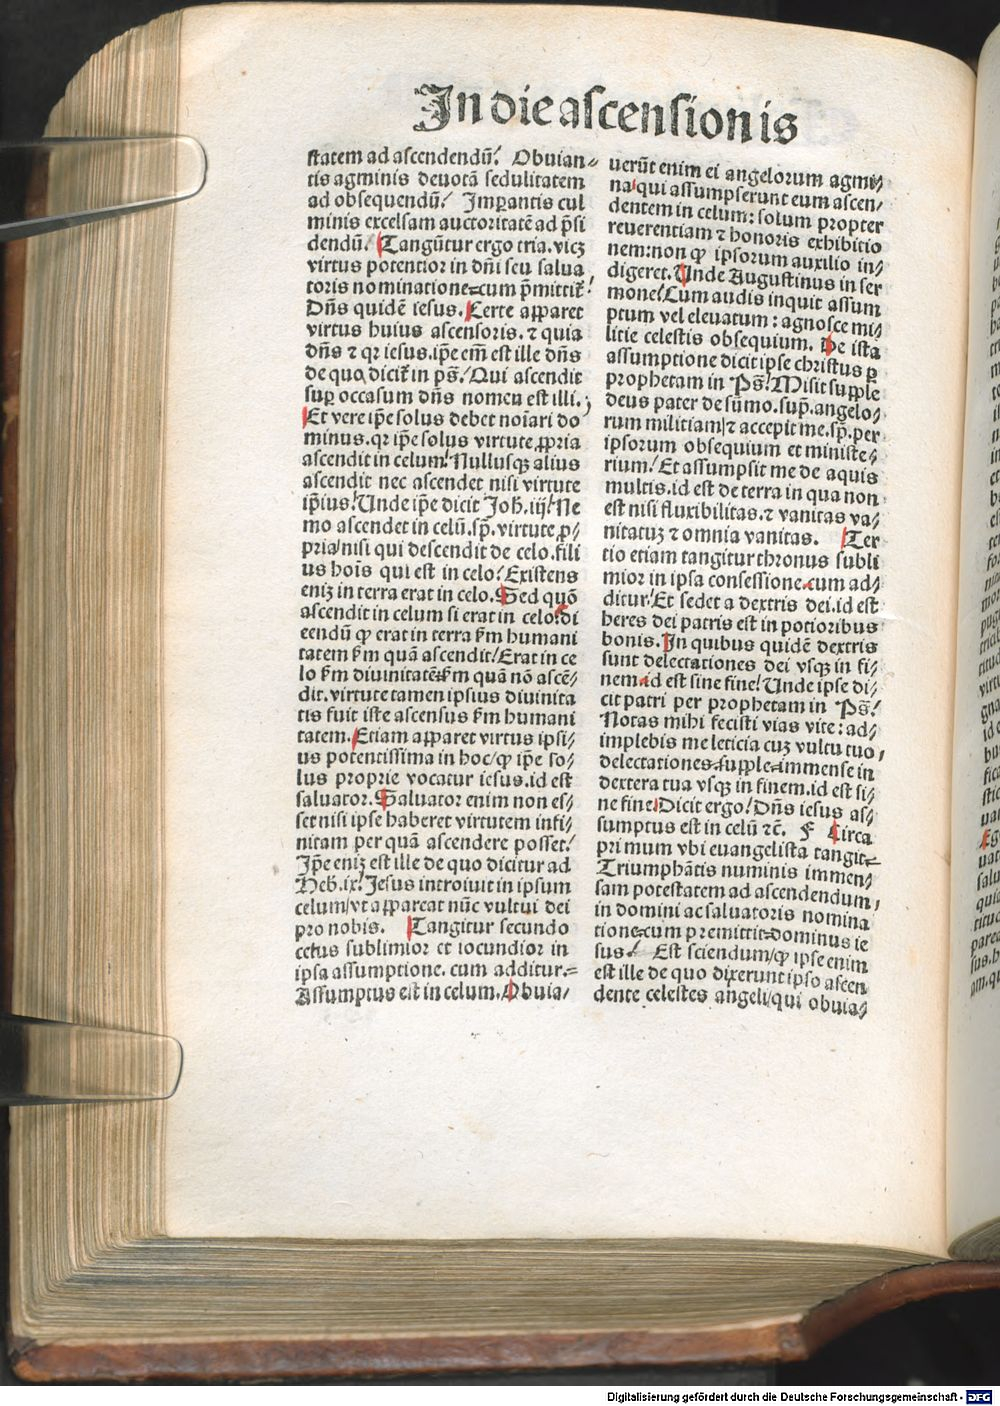 In die ascensionis
statem ad ascendendū. Obuian-
tis agminis deuotā sedulitatem
ad obsequendū. Imꝑantis cul
minis excelsam auctoritatē ad p̄si
dendū. Tangūtur ergo tria. vicꝫ
virtus potentior in dn̄i seu salua
toris nominatione cum p̄mittit̄.
Dn̄s quidē iesus. Certe apparet
virtus huius ascensoris. ⁊ quia
dn̄s ⁊ qꝛ iesus. ip̄e em̄ est ille dn̄s
de quo dicit̄ in ps̄. Qui ascendit
suꝑ occasum dn̄s nomen est illi.
Et vere ip̄e solus debet noīari do
minus. qꝛ ip̄e solus virtute ꝓpria
ascendit in celum. Nullusqꝫ alius
ascendit nec ascendet nisi virtute
ip̄ius. Unde ip̄e dicit Joh̄. iij. Ne
mo ascendet in celū. sp̄. virtute ꝓ-
pria/nisi qui descendit de celo. fili
us hoīs qui est in celo. Existens
enīꝫ in terra erat in celo. Sed quō
ascendit in celum si erat in celo. Di
cendū ꝙ erat in terra ẜm humani
tatem ẜm quā ascendit/Erat in ce
lo ẜm diuinitatē ẜm quā nō ascē-
dit. virtute tamen ipsius diuinita
tis fuit iste ascensus ẜm humani
tatem. Etiam apparet virtus ipsi-
us potentissima in hoc/ꝙ ip̄e so-
lus proprie vocatur iesus. id est
saluator. Saluator enim non es-
set nisi ipse haberet virtutem infi-
nitam per quā ascendere posset.
Ip̄e enīꝫ est ille de quo dicitur ad
Heb̄. ix. Jesus introiuit in ipsum
celum/vt appareat nūc vultui dei
pro nobis. Tangitur secundo
cetus sublimior et iocundior in
ipsa assumptione. cum additur.
Assumptus est in celum. Obuia-
uerūt enim ei angelorum agmi-
na/qui assumpserunt eum ascen-
dentem in celum: solum propter
reuerentiam ⁊ honoris exhibitio
nem: non ꝙ ipsorum auxilio in-
digeret. Unde Augustinus in ser
mone. Cum audis inquit assum
ptum vel eleuatum: agnosce mi-
litie celestis obsequium. De ista
assumptione dicit ipse christus ꝑ
prophetam in Ps̄. Misit supple
deus pater de sūmo. sup̄. angelo-
rum militiam/⁊ accepit me. sp̄. per
ipsorum obsequium et ministe-
rium. Et assumpsit me de aquis
multis. id est de terra in qua non
est nisi fluxibilitas. ⁊ vanitas va-
nitatuꝫ ⁊ omnia vanitas. Ter
tio etiam tangitur thronus subli
mior in ipsa consessione. cum ad-
ditur. Et sedet a dextris dei. id est
heres dei patris est in potioribus
bonis. In quibus quidē dextris
sunt delectationes dei vsqꝫ in fi-
nem. id est sine fine. Unde ipse di-
cit patri per prophetam in Ps̄.
Notas mihi fecisti vias vite: ad-
implebis me leticia cuꝫ vultu tuo,
delectationes supple immense in
dextera tua vsqꝫ in finem. id est si-
ne fine. Dicit ergo. Dn̄s iesus as-
sumptus est in celū ⁊c̄. F Circa
primum vbi euangelista tangit
Triumphātis numinis immen-
sam potestatem ad ascendendum,
in domini ac saluatoris nomina
tione cum premittit dominus ie
sus. Est sciendum/ꝙ ipse enim
est ille de quo dixerunt ipso ascen
dente celestes angeli/qui obuia-
Digitalisierung gefördert durch die Deutsche Forschungsgemeinschaft - DFG